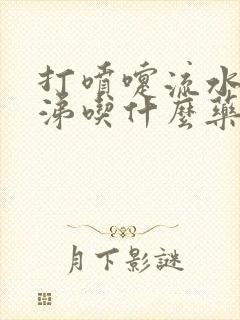 打噴嚏流水
涕喫什麼藥
月下影謎